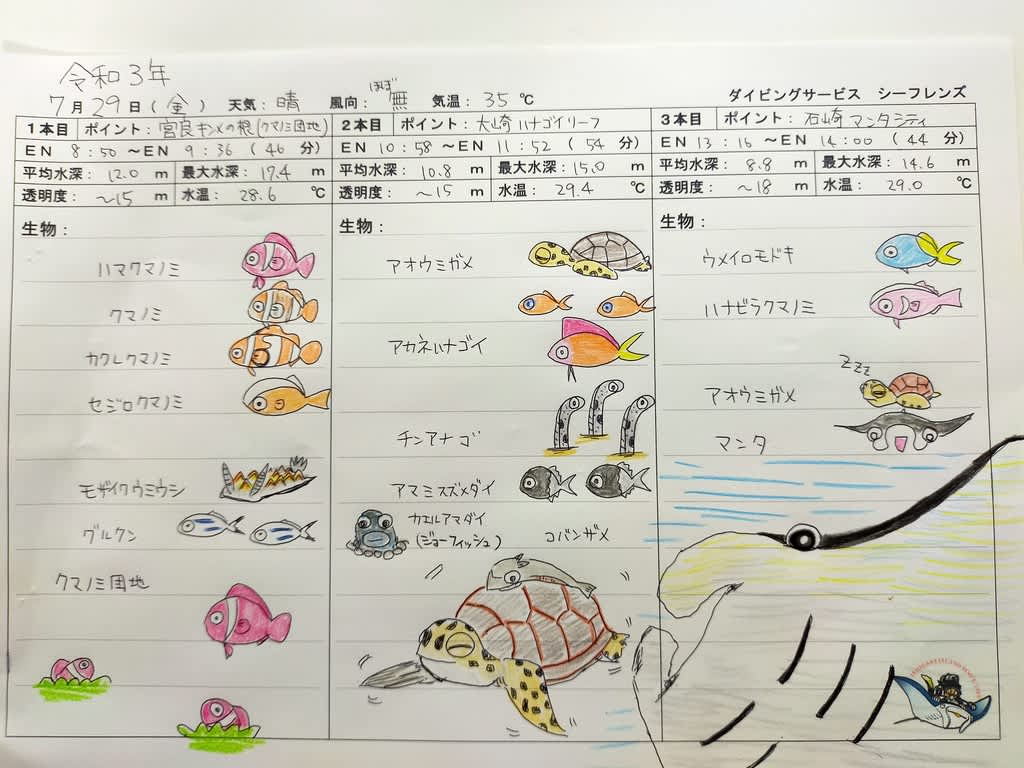 令和3年
7月29日(金) 天気:晴 風向:無 気温:35℃
ほぼ
ダイビングサービス シーフレンズ
1本目 ポイント:宮良キンメの根(クマノミ団地)
EN 8:50 ～EN 9:36 (46 分)
平均水深: 12.0 m 最大水深: 17.4 m
透明度: ～15 m 水温: 28.6 ℃
生物:
ハマクマノミ
クマノミ
カクレクマノミ
セジロクマノミ
モザイクウミウシ
グルクン
クマノミ団地
2本目 ポイント:大崎ハナゴイリーフ
EN 10:58 ～EN 11:52 (54 分)
平均水深: 10.8 m 最大水深: 15.0 m
透明度: ～15 m 水温: 29.4 ℃
生物:
アオウミガメ
アカネハナゴイ
チンアナゴ
アマミスズメダイ
カエルアマダイ
(ジョーフィッシュ) コバンザメ
3本目 ポイント:石崎マンタシティ
EN 13:16 ～EN 14:00 (44 分)
平均水深: 8.8 m 最大水深: 14.6 m
透明度: ～18 m 水温: 29.0 ℃
生物:
ウメイロモドキ
ハナビラクマノミ
zzz
アオウミガメ
マンタ